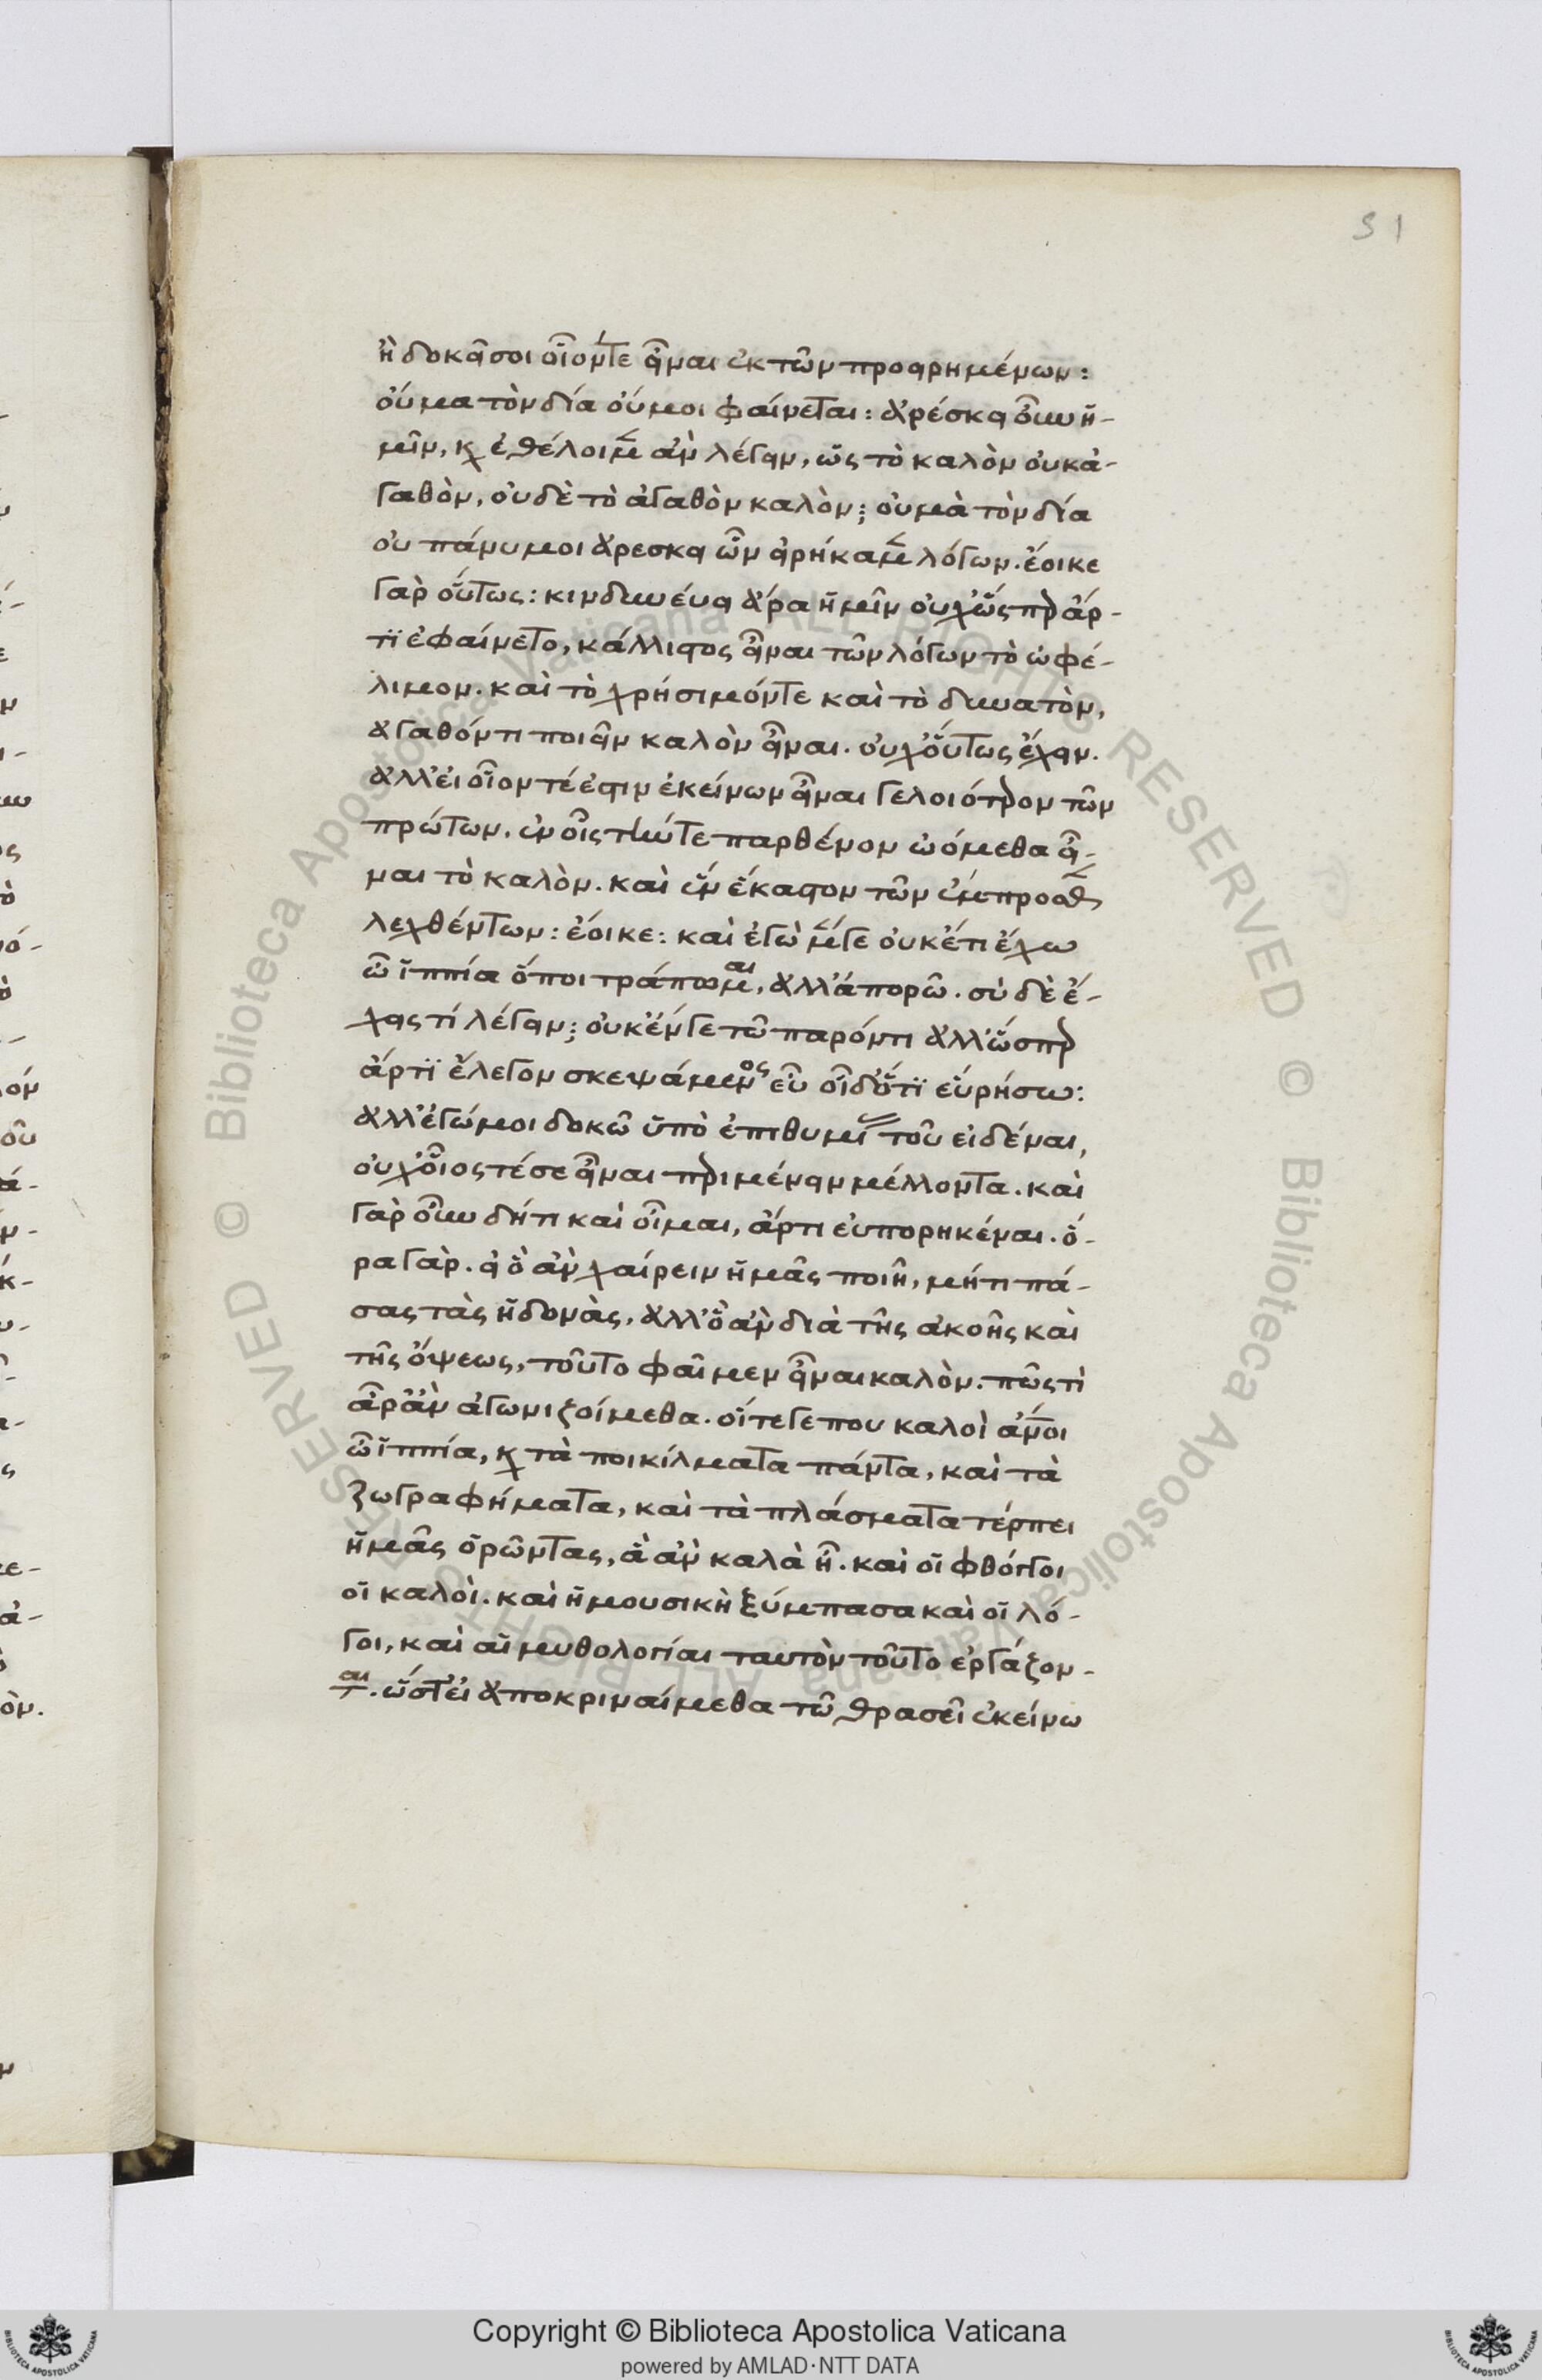 31
ἢ δοκεῖ σοι οἷόντε εἶναι ἐκ τῶν προειρημένων:
οὐ μα τὸν δία οὔ μοι φαίνεται: ἀρέσκει οὖν ἡ-
μῖν, κ ἐθέλοιμεν ἂν λέγειν, ὡς τὸ καλὸν οὐκ ἀ-
γαθὸν, οὐδὲ τὸ ἀγαθὸν καλὸν; οὐ μὰ τὸν δία
οὐ πάνυ μοι ἄρεσκει ὧν εἰρήκαμεν λόγων. ἔοικε
γὰρ οὕτως: κινδυνεύει ἄρα ἡμῖν οὐχ ὥσπερ ἄρ-
τϊ ἐφαίνετο, κάλλιστος εἶναι τῶν λόγων τὸ ὠφέ-
λιμον. καὶ τὸ χρήσιμόντε καὶ τὸ δυνατὸν,
ἀγαθόν τι ποιεῖν καλὸν εἶναι. οὐχ οὕτως ἔχειν.
ἀλλ' εἰ οἷον τέ ἐστιν ἐκείνων εἶναι γελοιότερον τῶν
πρώτων. ἐν οἷς τήντε παρθένον ὠόμεθα εἶ-
ναι τὸ καλὸν. καὶ ἓν ἕκαστον τῶν ἐμπροσθεν
λεχθέντων: ἔοικε: καὶ ἐγὼ μέν γε οὐκέτι ἔχω
ὦ ἱππία ὅποι τράπωμαι, ἀλλ' ἀπορῶ. σὺ δὲ ἔ-
χεις τί λέγειν; οὐκ ἔν γε τῶ παρόντι ἀλλ' ὥσπερ
ἄρτϊ ἔλεγον σκεψάμενος εὖ οἶδ' ὅτϊ εὑρήσω:
ἀλλ' ἐγώ μοι δοκῶ ὑπὸ ἐπιθυμίας τοῦ εἰδέναι,
οὐχ οἷός τέ σε εἶναι περιμένειν μέλλοντα. καὶ
γὰρ οὖν δή τι καὶ οἶμαι, ἄρτι εὐπορηκέναι. ὅ-
ρα γὰρ. εἰ ὃ ἂν χαίρειν ἡμᾶς ποιῆ, μή τι πά-
σας τὰς ἡδονὰς, ἀλλ' ὃ ἂν διὰ τῆς ἀκοῆς καὶ
τῆς ὄψεως, τοῦτο φαῖμεν εἶναι καλὸν. πῶς τὶ
ἆρ' ἂν ἀγωνιζοίμεθα. οἵ τε γε που καλοὶ ἄνοι
ὦ ἱππία, κ τὰ ποικίλματα πάντα, καὶ τὰ
ζωγραφήματα, καὶ τὰ πλάσματα τέρπει
ἡμᾶς ὁρῶντας, ἃ ἂν καλὰ ἦ. καὶ οἱ φθόγγοι
οἱ καλοὶ. καὶ ἡ μουσικὴ ξύμπασα καὶ οἱ λό-
γοι, καὶ αἱ μυθολογίαι ταυτὸν τοῦτο ἐργάζον-
ται. ὥστ' εἰ ἀποκριναίμεθα τῶ θρασεῖ ἐκείνω
Copyright © Biblioteca Apostolica Vaticana
powered by AMLAD·NTT DATA